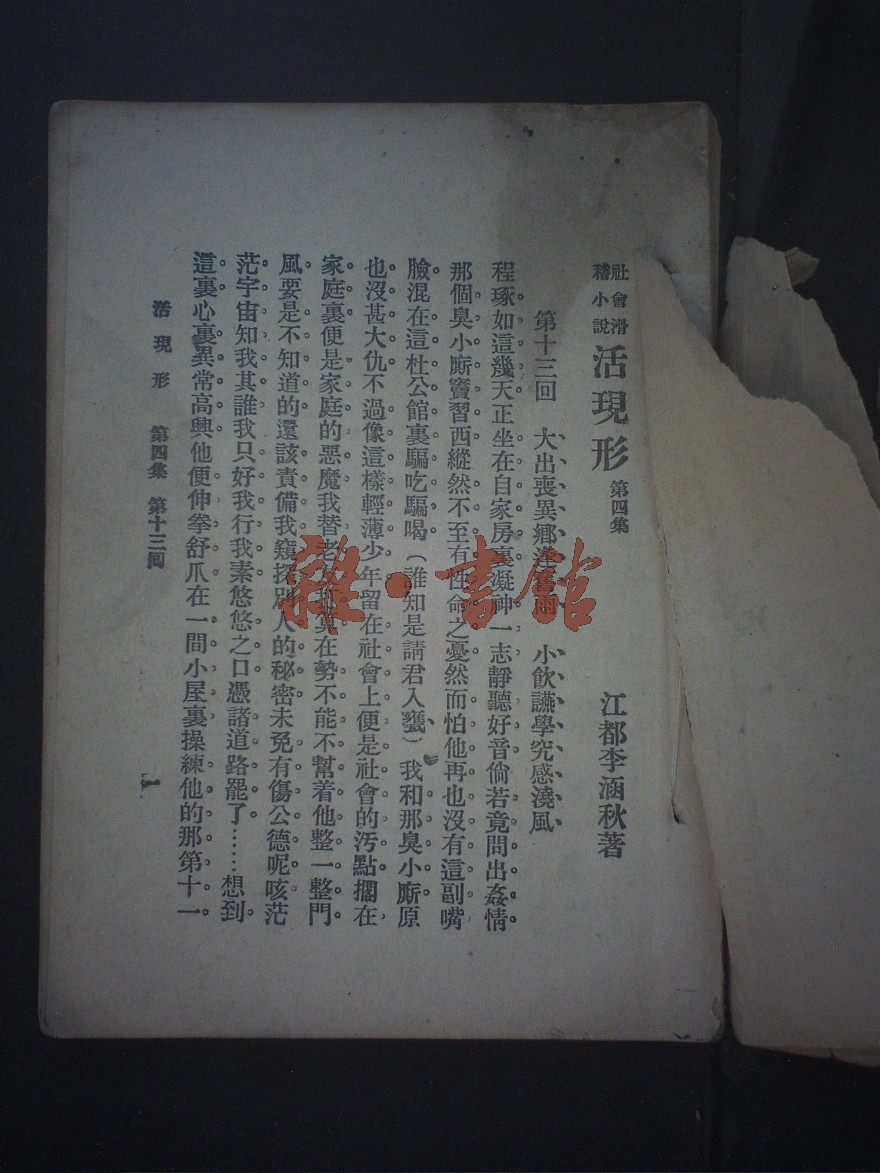 社會滑稽小說 活現形 第四集 江都李涵秋著
第十三回 大出喪異鄉逢舊雨 小飲讌學究感澆風
程琢如這幾天正坐在自家房裏凝神一志靜聽好音倘若竟問出姦情
那個臭小廝竇習西縱然不至有性命之憂然而怕他再也沒有這副嘴
臉混在這杜公館裏騙吃騙喝（誰知是請君入甕）我和那臭小廝原
也沒甚大仇不過像這樣輕薄少年留在社會上便是社會的汚點擱在
家庭裏便是家庭的惡魔我替老 在勢不能不幫着他整一整門
風要是不知道的還該責備我窺探別人的秘密未免有傷公德呢咳茫
茫宇宙知我其誰我只好我行我素悠悠之口憑諸道路罷了……想到
這裏心裏異常高興他便伸拳舒爪在一間小屋裏操練他的那第十一
活現形 第四集 第十三回
1
雜·書館